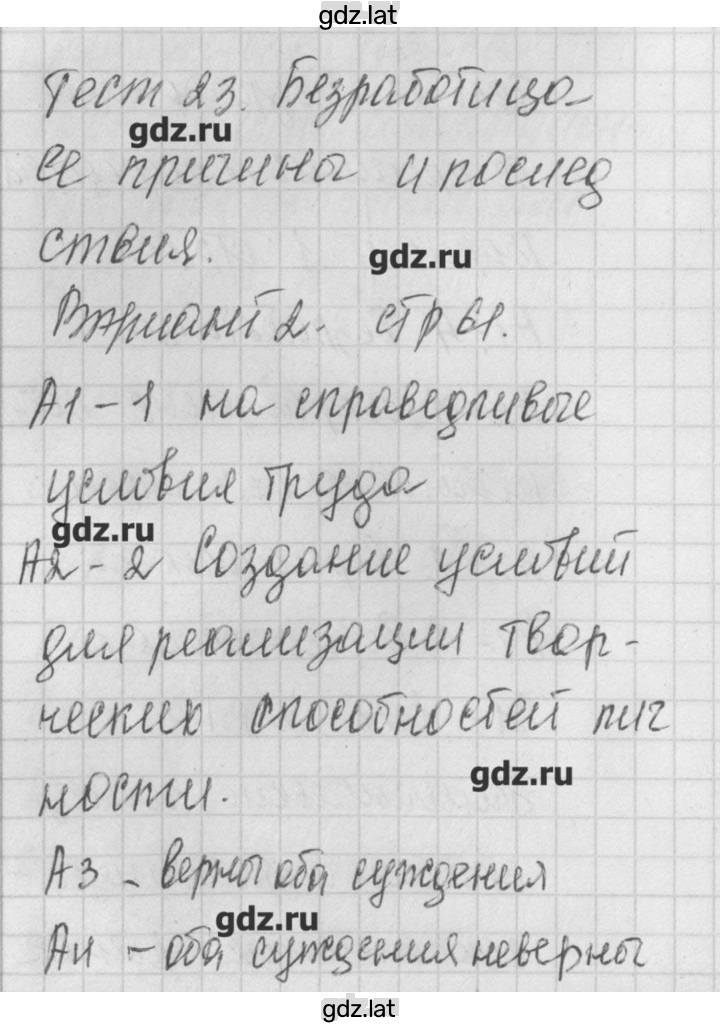 gdz.lat
Тест 23. Безработица
gdz.ru
ее причины и послед
ствия.
gdz.ru
Вариант 2. стр 61.
А1 - 1 на справедливые
условия труда
gdz.ru
А2 - 2 Создание условий
для реализации твор-
ческих способностей лич
gdz.ru
ности.
А3 - верны оба суждения
gdz.ru
А4 - оба суждения неверны
gdz.lat